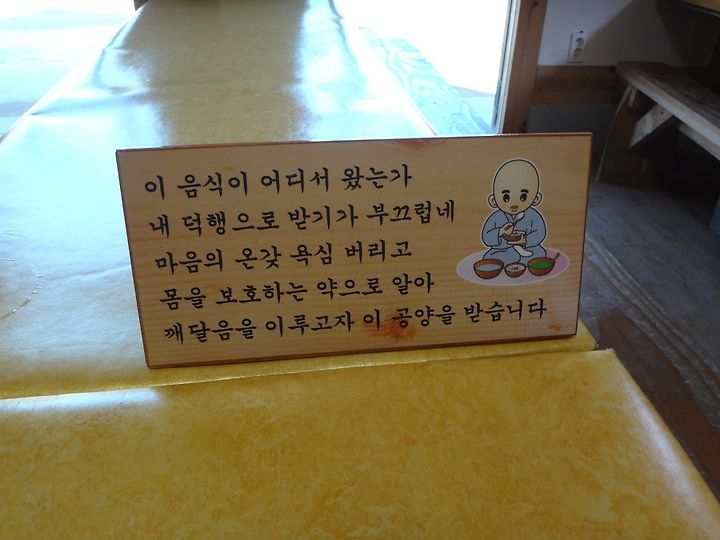 이 음식이 어디서 왔는가
내 덕행으로 받기가 부끄럽네
마음의 온갖 욕심 버리고
몸을 보호하는 약으로 알아
깨달음을 이루고자 이 공양을 받습니다